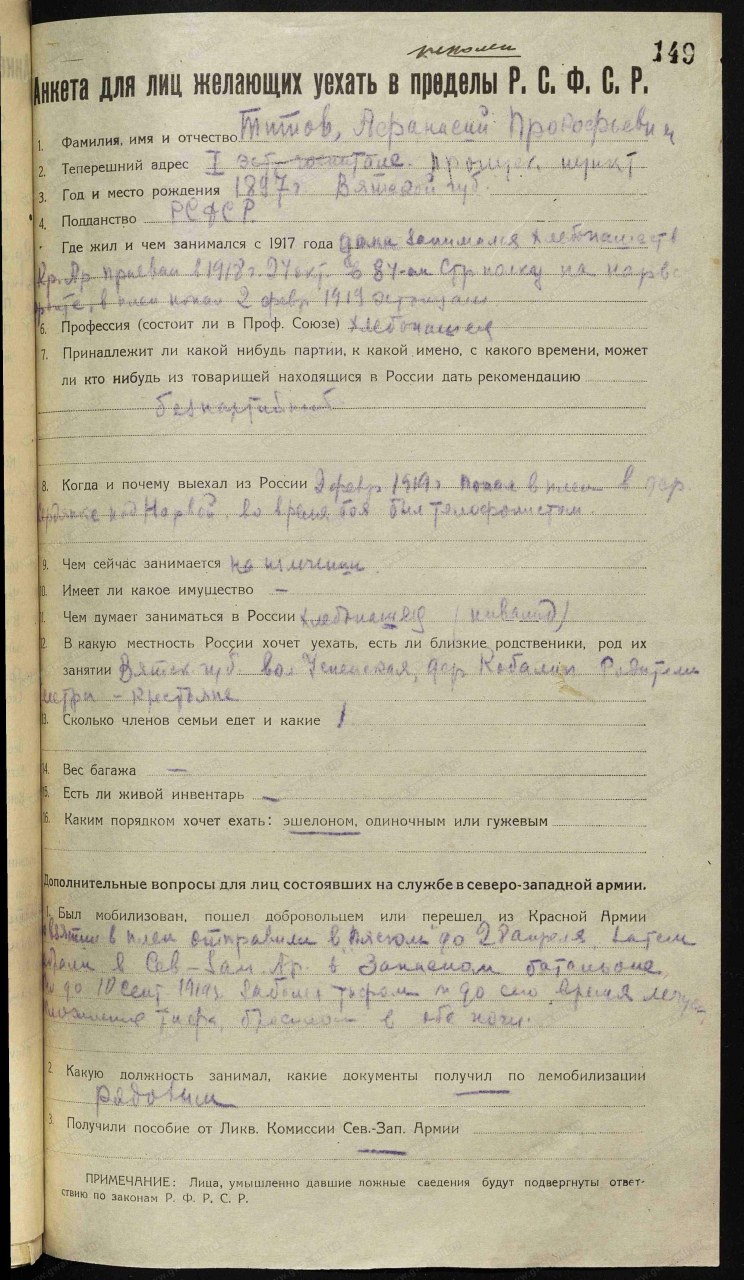 149
Анкета для лиц желающих уехать в пределы Р. С. Ф. С. Р.
1. Фамилия, имя и отчество Титов, Афанасий Прокофьевич
2. Теперешний адрес I эст. госпитале. пункт
3. Год и место рождения 1897 г Вятской губ.
4. Подданство РСФСР.
Где жил и чем занимался с 1917 года дома занимался хлебопашеств
Кр. Ар призван в 1918 г. 27 окт. В 87-ом Стр полку на нарвс
в плен попал 2 февр 1919 эстонцами
6. Профессия (состоит ли в Проф. Союзе) хлебопашец
7. Принадлежит ли какой нибудь партии, к какой имено, с какого времени, может
ли кто нибудь из товарищей находящися в России дать рекомендацию
безпартийный
8. Когда и почему выехал из России 2 февр 1919 г попал в плен в дер
под Нарвой, во время боя был телефонистом.
9. Чем сейчас занимается на излечении
10. Имеет ли какое имущество —
11. Чем думает заниматься в России хлебопашец (инвалид)
12. В какую местность России хочет уехать, есть ли близкие родственики, род их
занятии Вятск губ. вол Успенская, дер Кобалии Родители
сестры - крестьяне
13. Сколько членов семьи едет и какие 1
14. Вес багажа —
15. Есть ли живой инвентарь —
16. Каким порядком хочет ехать: эшелоном, одиночным или гужевым
Дополнительные вопросы для лиц состоявших на службе в северо-западкой армии.
1. Был мобилизован, пошел добровольцем или перешел из Красной Армии
в плен отправили в до 28 апреля, затем
в Сев-Зап. Ар. в Запасном батальоне,
до 10 сент 1919 г. Заболел тифом и до сего время
тифа, в обе ноги.
2. Какую должность занимал, какие документы получил по демобилизации
рядовым —
3. Получили пособие от Ликв. Комиссии Сев.-Зап. Армии
—
ПРИМЕЧАНИЕ: Лица, умышленно давшие ложные сведения будут подвергнуты ответ-
ствию по законам Р. Ф. Р. С. Р.